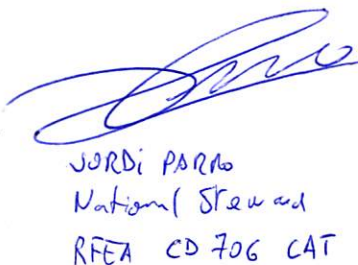 JORDi PARRO
National Steward
RFEA CD 706 CAT